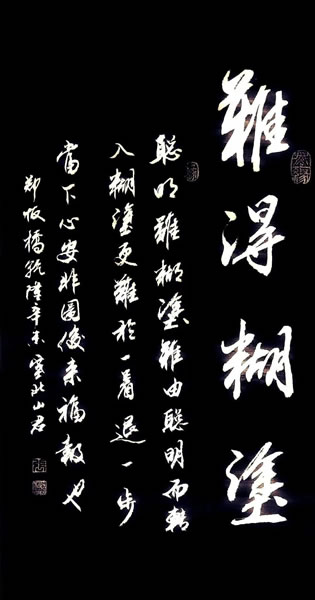 難得糊塗
聰明難糊塗難由聰明而轉
入糊塗更難放一着退一步
當下心安非圖後来福報也
鄭板橋乾隆辛未塞北山君